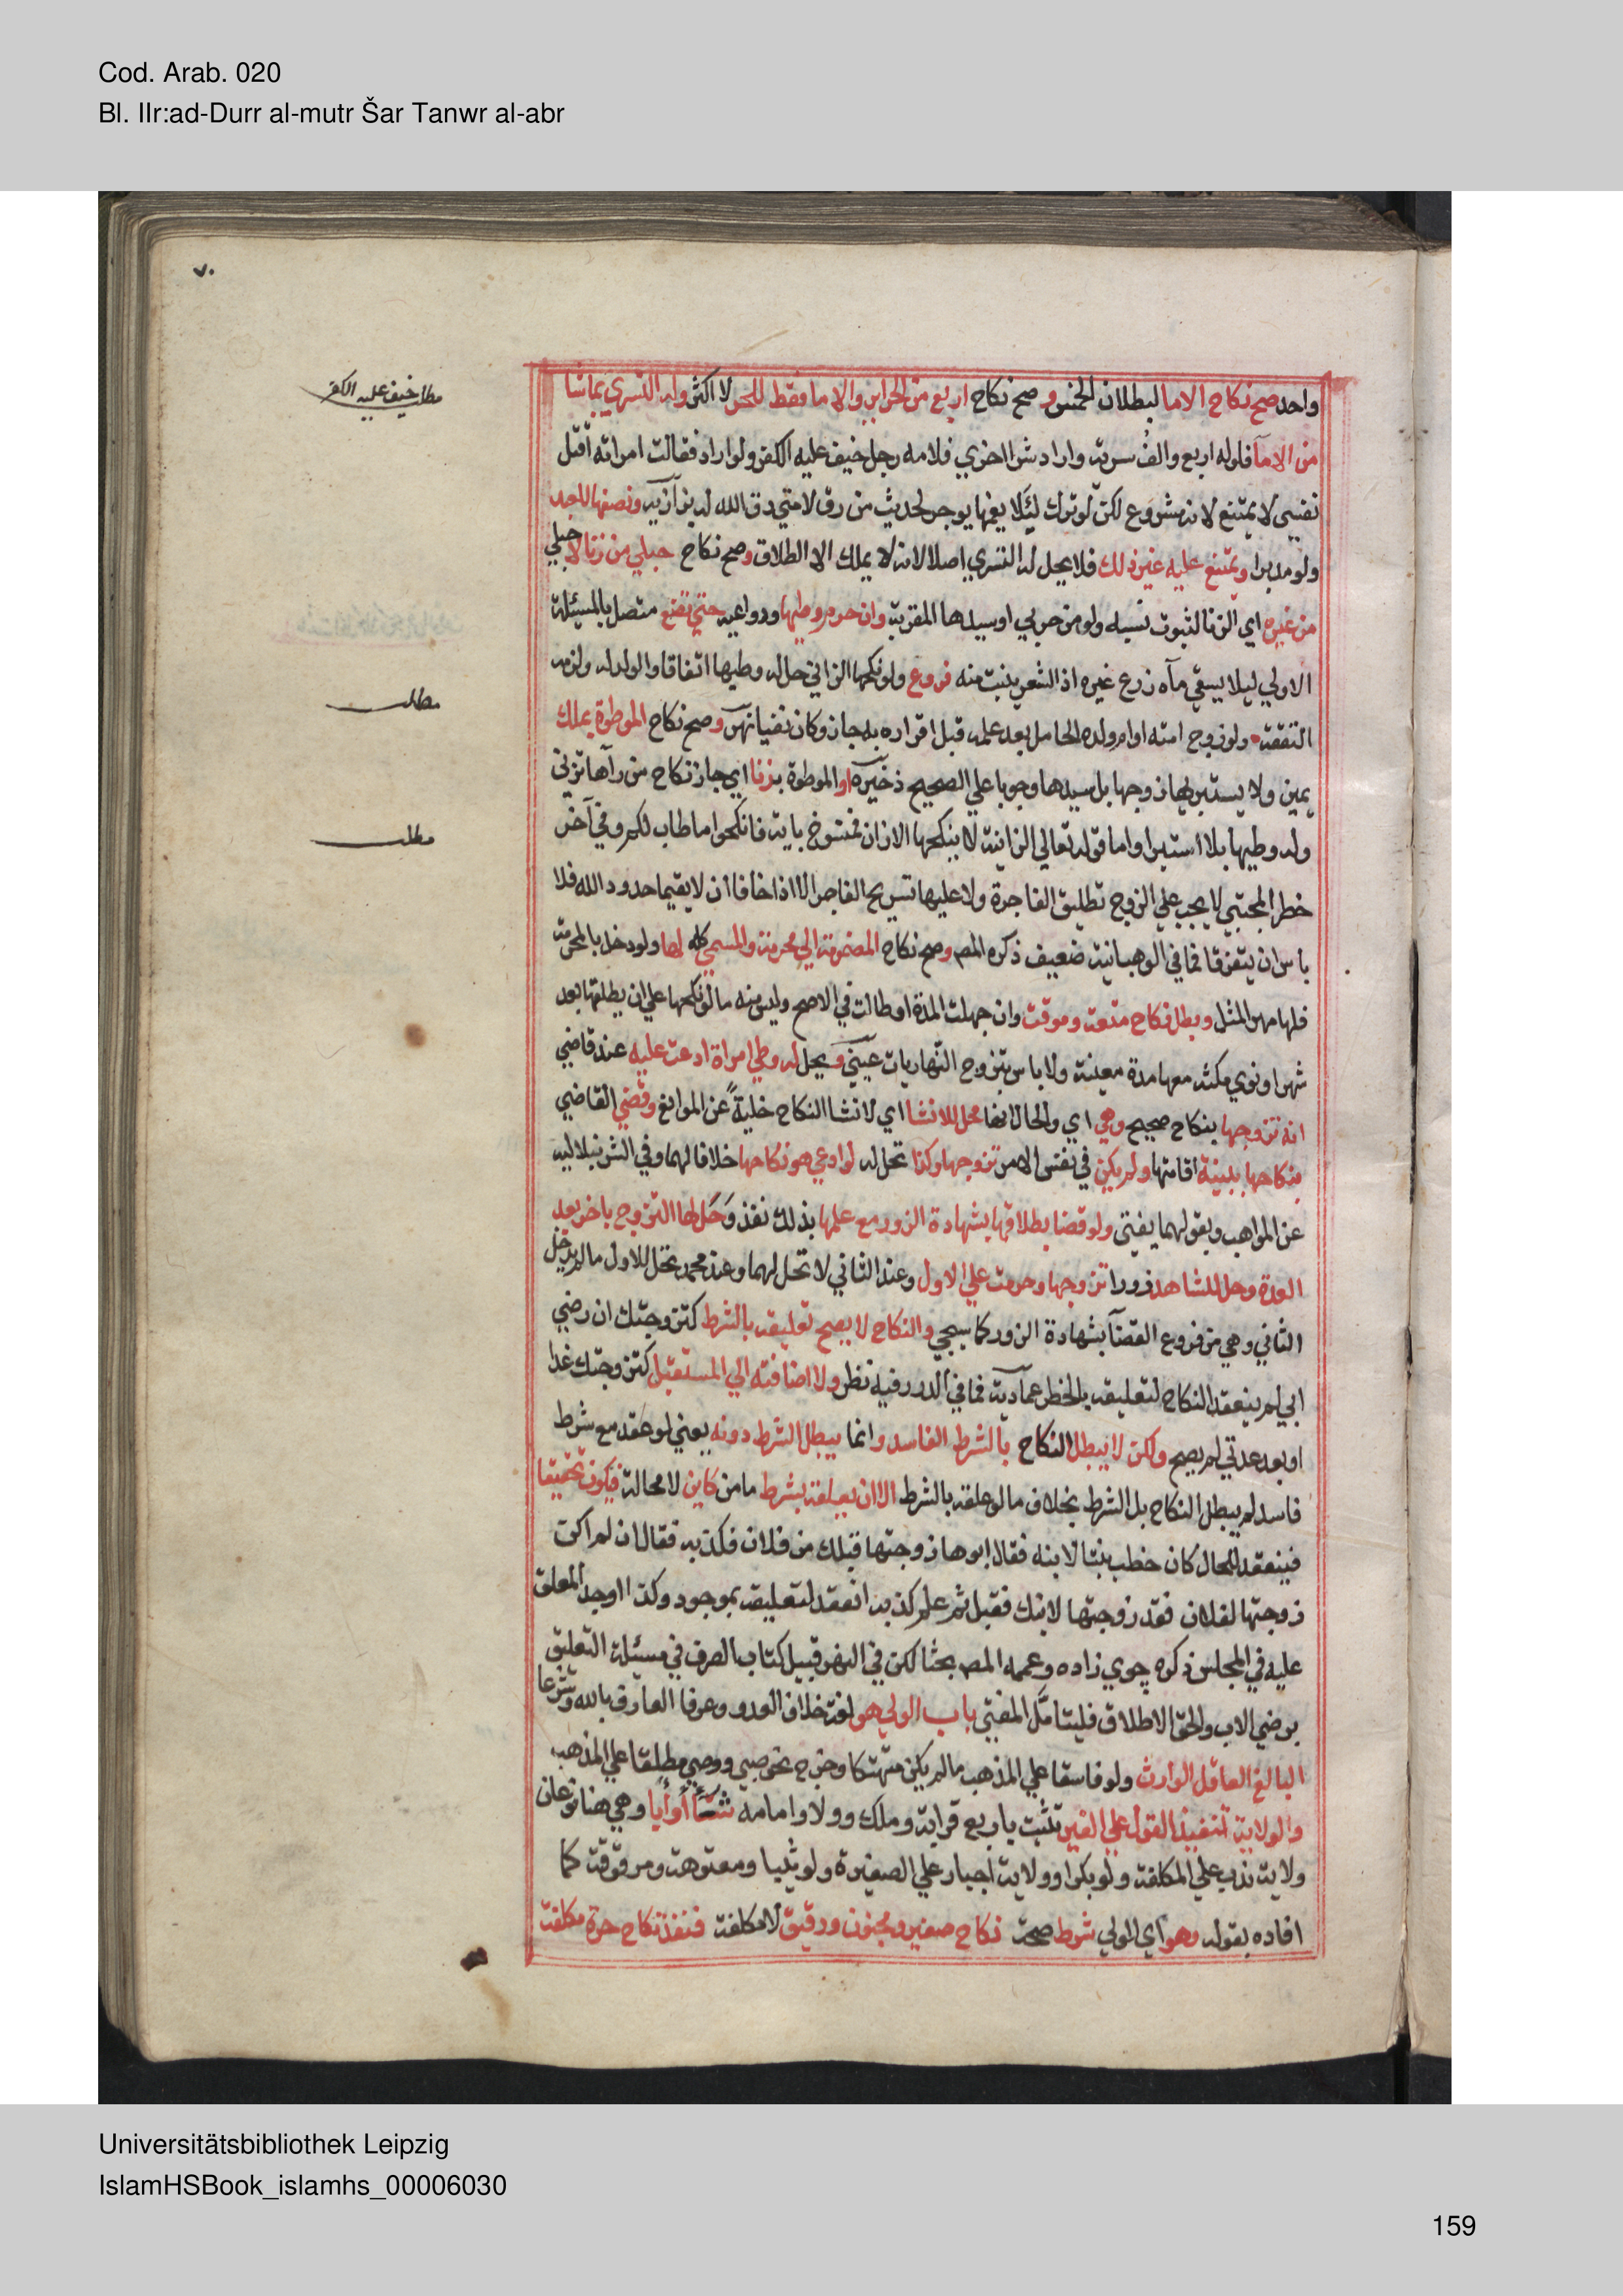 Cod. Arab. 020
Bl. IIr:ad-Durr al-mutr Šar Tanwr al-abr
٧٠
مطلب خيف عليه الكفر
مطلب
مطلب
واحد صح نكاح الاما لبطلان الخمس وصح نكاح اربع من الحراير والاما فقط للحر لا اكثر وله التسري بما شا
من الاما فلو له اربع والف سرية واراد شرا اخري فلامه رجل خيف عليه الكفر ولو اراد فقالت امراته اقتل
نفسي لا يمتنع لانه مشروع لكن لو ترك ليلا يغمها يوجر لحديث من رق لامتي رق الله له بزازيه ونصفها للعبد
ولو مدبرا ويمتنع عليه غير ذلك فلا يحل له التسري اصلا لانه لا يملك الا الطلاق وصح نكاح حبلي من زنا لا حبلي
من غيره اي الزنا لثبوت نسبه ولو من حربي او سيدها المقر به وان حرم وطيها ودواعيه حتي تضع متصل بالمسئلة
الاولي ليلا يسقي ماه زرع غيره اذ الشعر ينبت منه فروع ولو نكحها الزاني حل له وطيها اتفاقا والولد له ولزمه
النفقة ولو زوج امته او ام ولده الحامل بعد علمه قبل اقراره به جاز وكان نفيا نهر وصح نكاح الموطوة بملك
يمين ولا يستبريها زوجها بل سيدها وجوبا علي الصحيح ذخيره او الموطوة بزنا اي جاز نكاح من رآها تزني
وله وطيها بلا استبرا واما قوله تعالي الزانية لا ينكحها الا زان فمنسوخ باية فانكحوا ما طاب لكم وفي آخر
خطر المجتبي لا يجب علي الزوج تطليق الفاجرة ولا عليها تسريح الفاجر الا اذا خافا ان لا يقيما حدود الله فلا
باس ان يتفرقا فما في الوهبانية ضعيف ذكره المص وصح نكاح المضمومة الي محرمة والمسمي كله لها ولو دخل بالمحرمة
فلها مهر المثل وبطل نكاح متعة وموقت وان جهلت المدة او طالت في الاصح وليس منه ما لو نكحها علي ان يطلقها بعد
شهر او نوي مكثه معها مدة معينة ولا باس بتزوج النهاريات عيني ويحل له وطي امراة ادعت عليه عند قاضي
انه تزوجها بنكاح صحيح وهي اي والحال انها محل للانشا اي لانشا النكاح خلية عن الموانع وقضي القاضي
بنكاحها ببينة اقامتها ولم يكن في نفس الامر تزوجها وكذا تحل له لو ادعي هو نكاحها خلافا لهما وفي الشرنبلاليه
عن المواهب وبقولهما يفتي ولو قضا بطلاقها بشهادة الزور مع علمها بذلك نفذ وحل لها التزوج باخر بعد
العدة وحل للشاهد زورا تزوجها وحرمت علي الاول وعند الثاني لا تحل لهما وعند محمد تحل للاول ما لم يدخل
الثاني وهي من فروع القضآ بشهادة الزور كما سيجي والنكاح لا يصح تعليقه بالشرط كتزوجتك ان رضي
ابي لم ينعقد النكاح لتعليقه بالخطر عمادية فما في الدرر فيه نظر ولا اضافته الي المستقبل كتزوجتك غدا
او بعد غد لم يصح ولكن لا يبطل النكاح بالشرط الفاسد وانما يبطل الشرط دونه يعني لو عقد مع شرط
فاسد لم يبطل النكاح بل الشرط بخلاف ما لو علقه بالشرط الا ان يعلقه بشرط مامن كاين لا محالة فيكون تحقيقا
فينعقد للحال كان خطب بنتا لابنه فقال ابوها زوجتها قبلك من فلان فكذبه فقال ان لم اكن
زوجتها لفلان فقد زوجتها لابنك فقبل ثم علم كذبه انعقد لتعليقه بموجود وكذا اوجد المعلق
عليه في المجلس ذكره جوي زاده وعممه المص بحثا لكن في النهر قبيل كتاب الصرف في مسئلة التعليق
برضي الاب والحق الاطلاق فليتامل المفتي باب الولي هو لغة خلاف العدو وعرفا العارف بالله وشرعا
البالغ العاقل الوارث ولو فاسقا علي المذهب ما لم يكن متهتكا وخرج نحو صبي ووصي مطلقا علي المذهب
والولاية تنفيذ القول علي الغير تثبت باربع قرابة وملك وولا وامامه شآ أو أبا وهي هنا نوعان
ولاية ندب علي المكلفة ولو بكرا وولاية اجبار علي الصغيرة ولو ثيبا ومعتوهة ومرقوقة كما
افاده بقوله وهو اي الولي شرط صحة نكاح صغير ومجنون ورقيق لا مكلفة فنفذ نكاح حرة مكلفة
Universitätsbibliothek Leipzig
IslamHSBook_islamhs_00006030
159